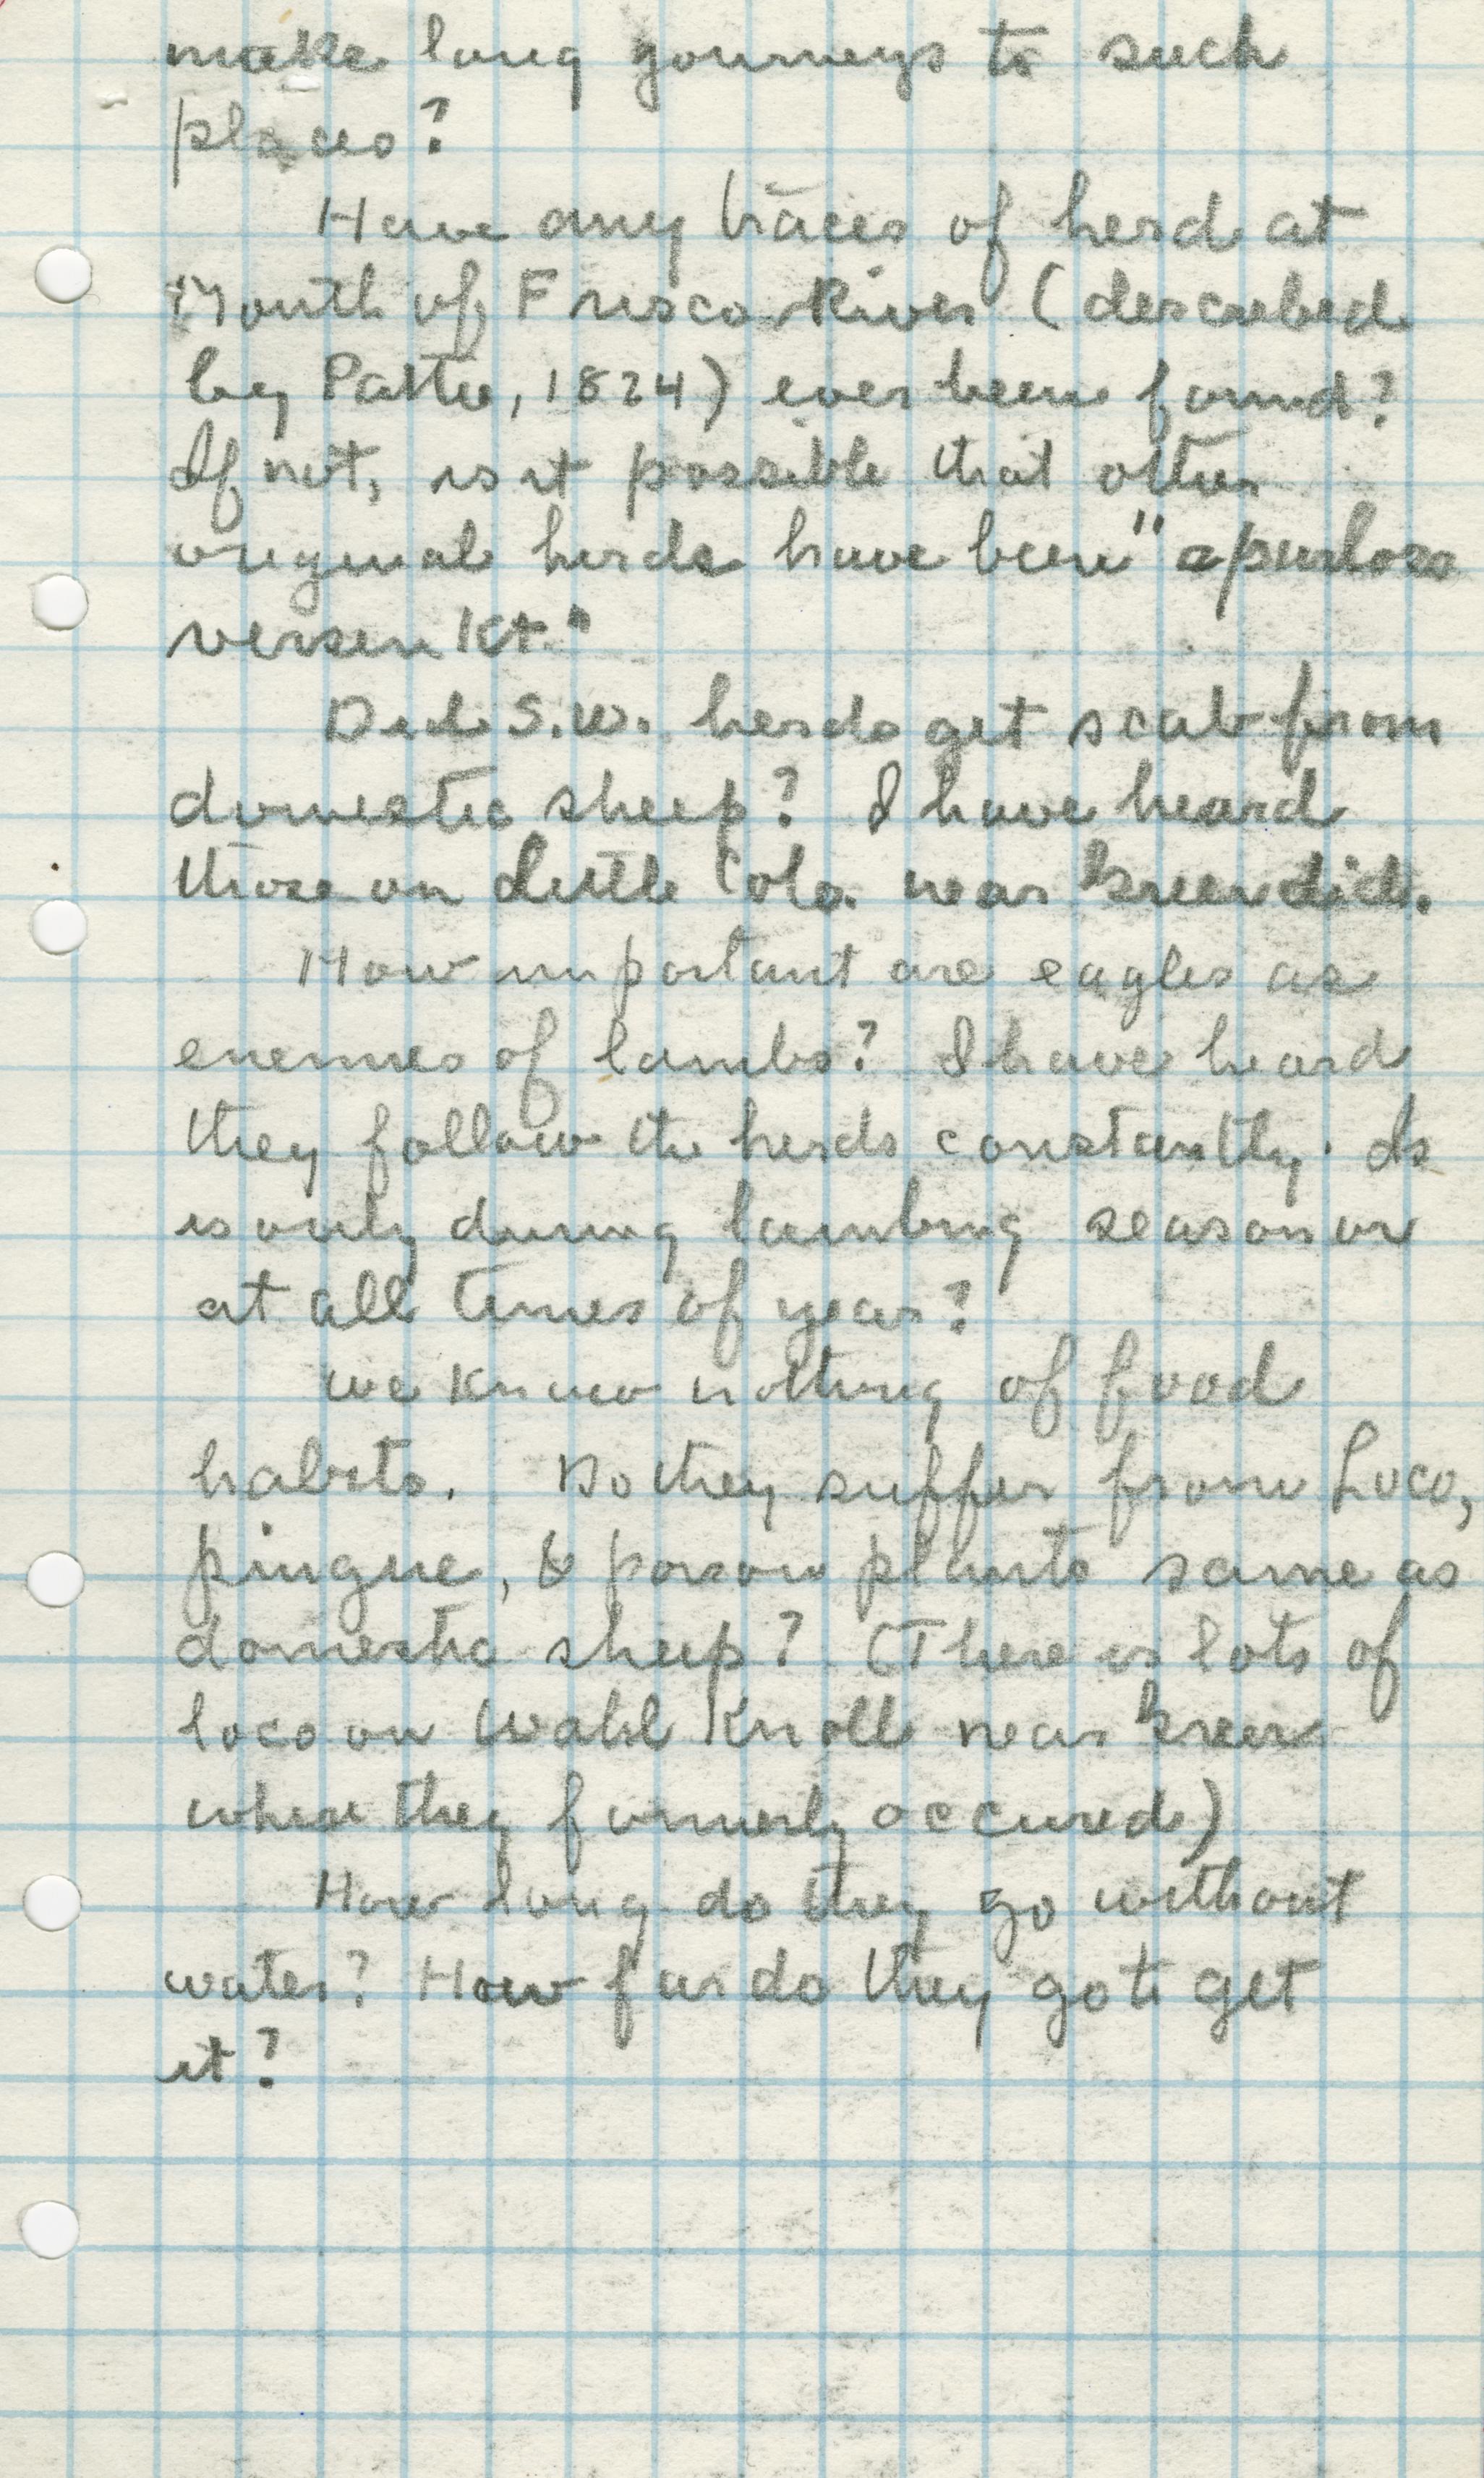 make long journeys to such
places?
Have any traces of herd at
Mouth of Frisco River (described
by Pattie, 1824) ever been found?
If not, is it possible that other
original herds have been "spurlos
versenkt."
Did S.W. herds get scab from
domestic sheep? I have heard
those on Little Colo. near Greer did.
How important are eagles as
enemies of lambs? I have heard
they follow the herds constantly. Is
is only during lambing season or
at all times of year?
We know nothing of food
habits. Do they suffer from Loco,
pingue, & poison plants same as
domestic sheep? (There is lots of
loco on Wahl Knoll near Greer
where they formerly occured)
How long do they go without
water? How far do they go to get
it?